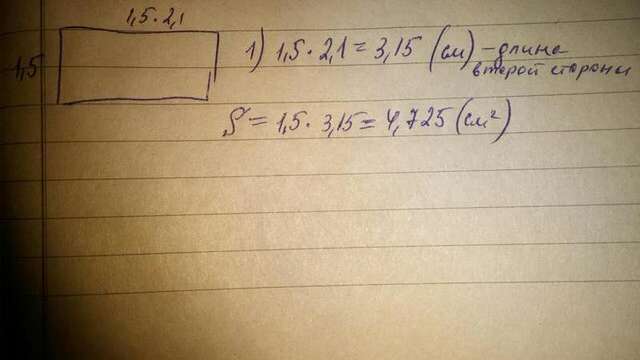 1,5 · 2,1
1,5
1) 1,5 · 2,1 = 3,15 (см) – длина
второй стороны
S = 1,5 · 3,15 = 4,725 (см²)